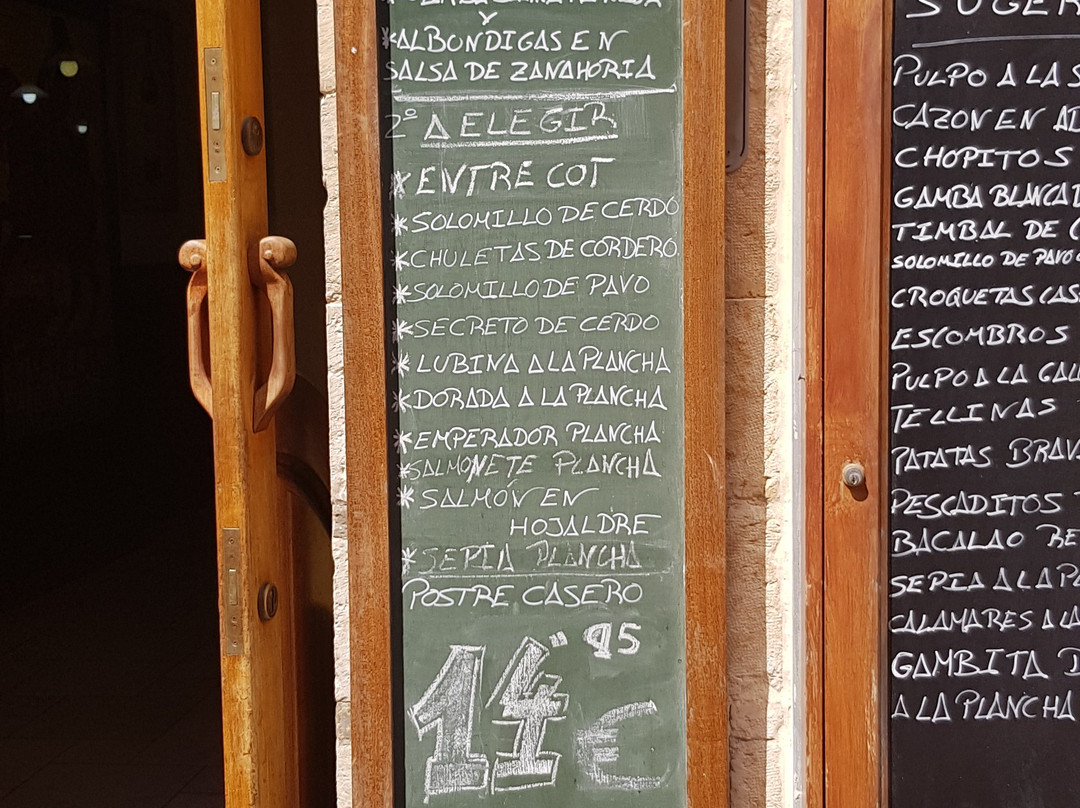 Y
*ALBONDIGAS EN
SALSA DE ZANAHORIA
2º A ELEGIR
*ENTRE COT
*SOLOMILLO DE CERDO
*CHULETAS DE CORDERO.
*SOLOMILLO DE PAVO
*SECRETO DE CERDO
*LUBINA A LA PLANCHA
*DORADA A LA PLANCHA
*EMPERADOR PLANCHA
*SALMONETE PLANCHA
*SALMÓN EN
HOJALDRE
*SEPIA PLANCHA
POSTRE CASERO
14"95
€
SUGER
PULPO A LA S
CAZON EN AD
CHOPITOS
GAMBA BLANCA D
TIMBAL DE C
SOLOMILLO DE PAVO
CROQUETAS CAS
ESCOMBROS
PULPO A LA GALL
TELLINAS
PATATAS BRAVA
PESCADITOS
BACALAO RE
SEPIA A LA PL
CALAMARES A LA
GAMBITA D
A LA PLANCHA